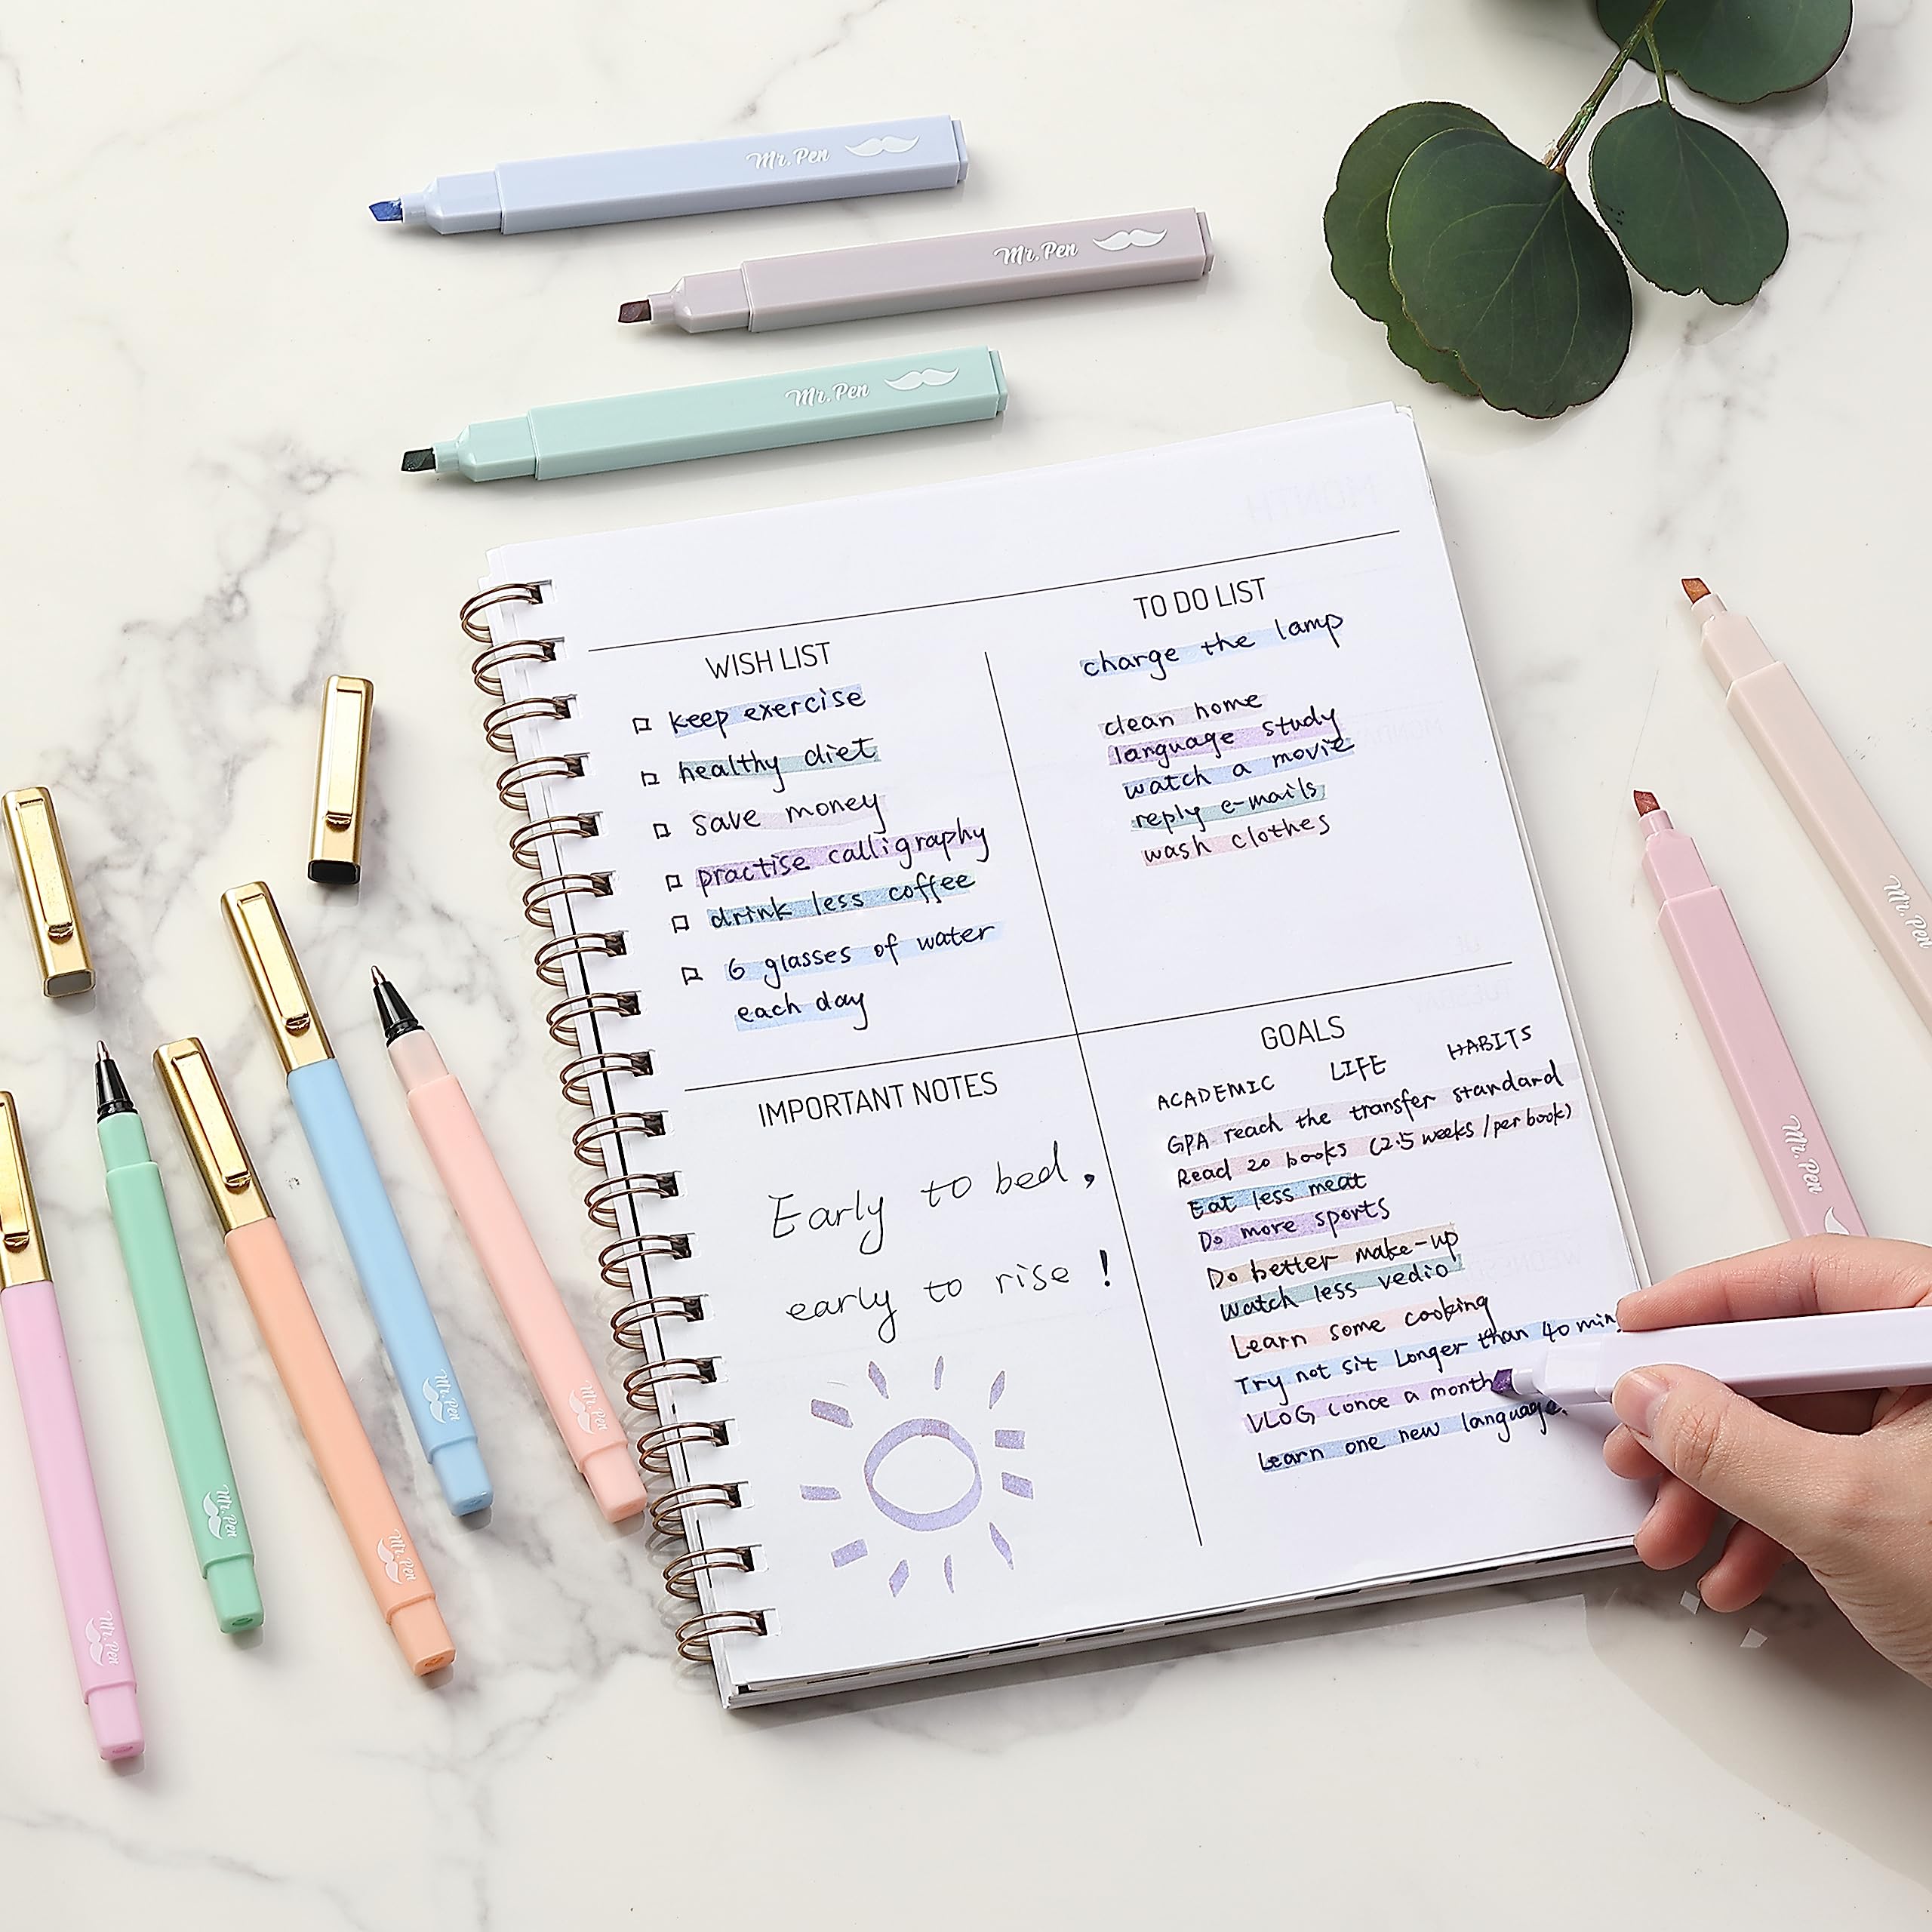 Mr. Pen
Mr. Pen
Mr. Pen
WISH LIST
keep exercise
healthy diet
save money
practise calligraphy
drink less coffee
6 glasses of water
each day
TO DO LIST
charge the lamp
clean home
language study
watch a movie
reply e-mails
wash clothes
IMPORTANT NOTES
Early to bed,
early to rise!
GOALS
ACADEMIC LIFE HABITS
GPA reach the transfer standard
Read 20 books (2.5 weeks /per book)
Eat less meat
Do more sports
Do better make-up
Watch less vedio
Learn some cooking
Try not sit Longer than 40 min
VLOG (once a month
Learn one new language.
Mr. Pen
Mr. Pen
Mr. Pen
Mr. Pen
Mr. Pen
Mr. Pen
Mr. Pen